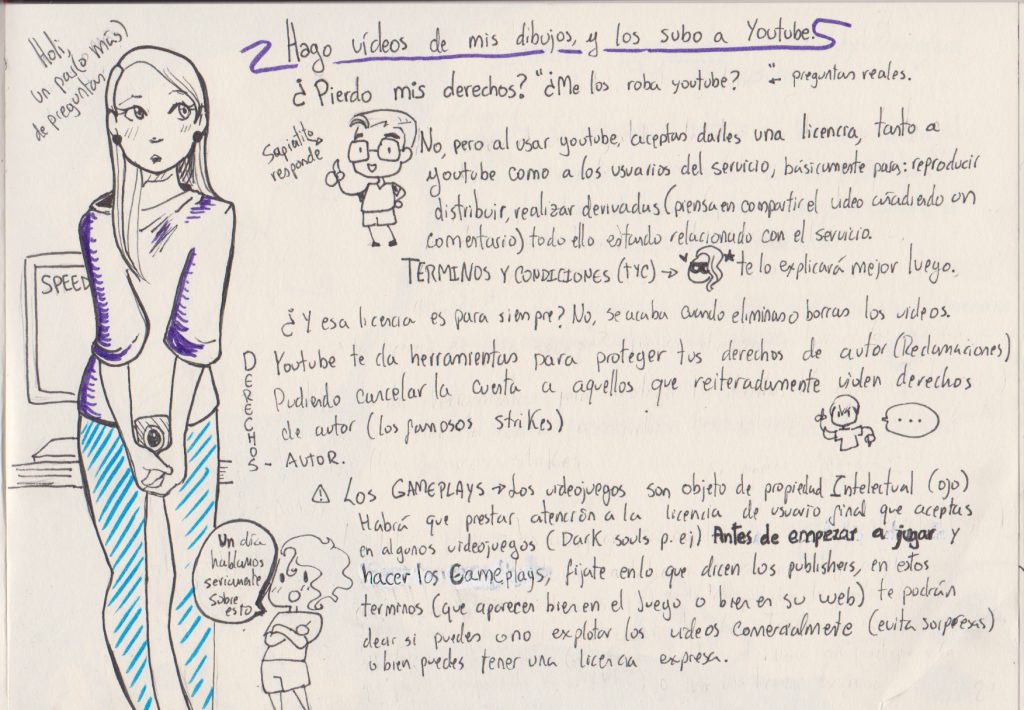 Holi,
un pas(o más)
de preguntar
Hago vídeos de mis dibujos, y los subo a Youtube.
¿Pierdo mis derechos? "¿Me los roba youtube?" ← preguntas reales.
Sapientito
responde
No, pero al usar youtube, aceptas darles una licencia, tanto a
youtube como a los usuarios del servicio, básicamente para: reproducir
distribuir, realizar derivadas (piensa en compartir el video añadiendo un
comentario) todo ello estando relacionado con el servicio.
TERMINOS Y CONDICIONES (TYC) → te lo explicará mejor luego.
¿Y esa licencia es para siempre? No, se acaba cuando eliminas o borras los videos.
SPEED
DERECHOS
Youtube te da herramientas para proteger tus derechos de autor (Reclamaciones)
Pudiendo cancelar la cuenta a aquellos que reiteradamente violen derechos
de autor (los famosos strikes)
...
- AUTOR.
⚠ LOS GAMEPLAYS → Los videojuegos son objeto de propiedad Intelectual (ojo)
Habrá que prestar atención a la licencia de usuario final que aceptas
en algunos videojuegos (Dark souls p. ej) Antes de empezar a jugar y
hacer los Gameplays, fijate en lo que dicen los publishers, en estos
terminos (que aparecen bien en el Juego o bien en su web) te podrán
decir si puedes o no explotar los videos comercialmente (evita sorpresas)
o bien puedes tener una licencia expresa.
Un día
hablamos
seriamente
sobre
esto